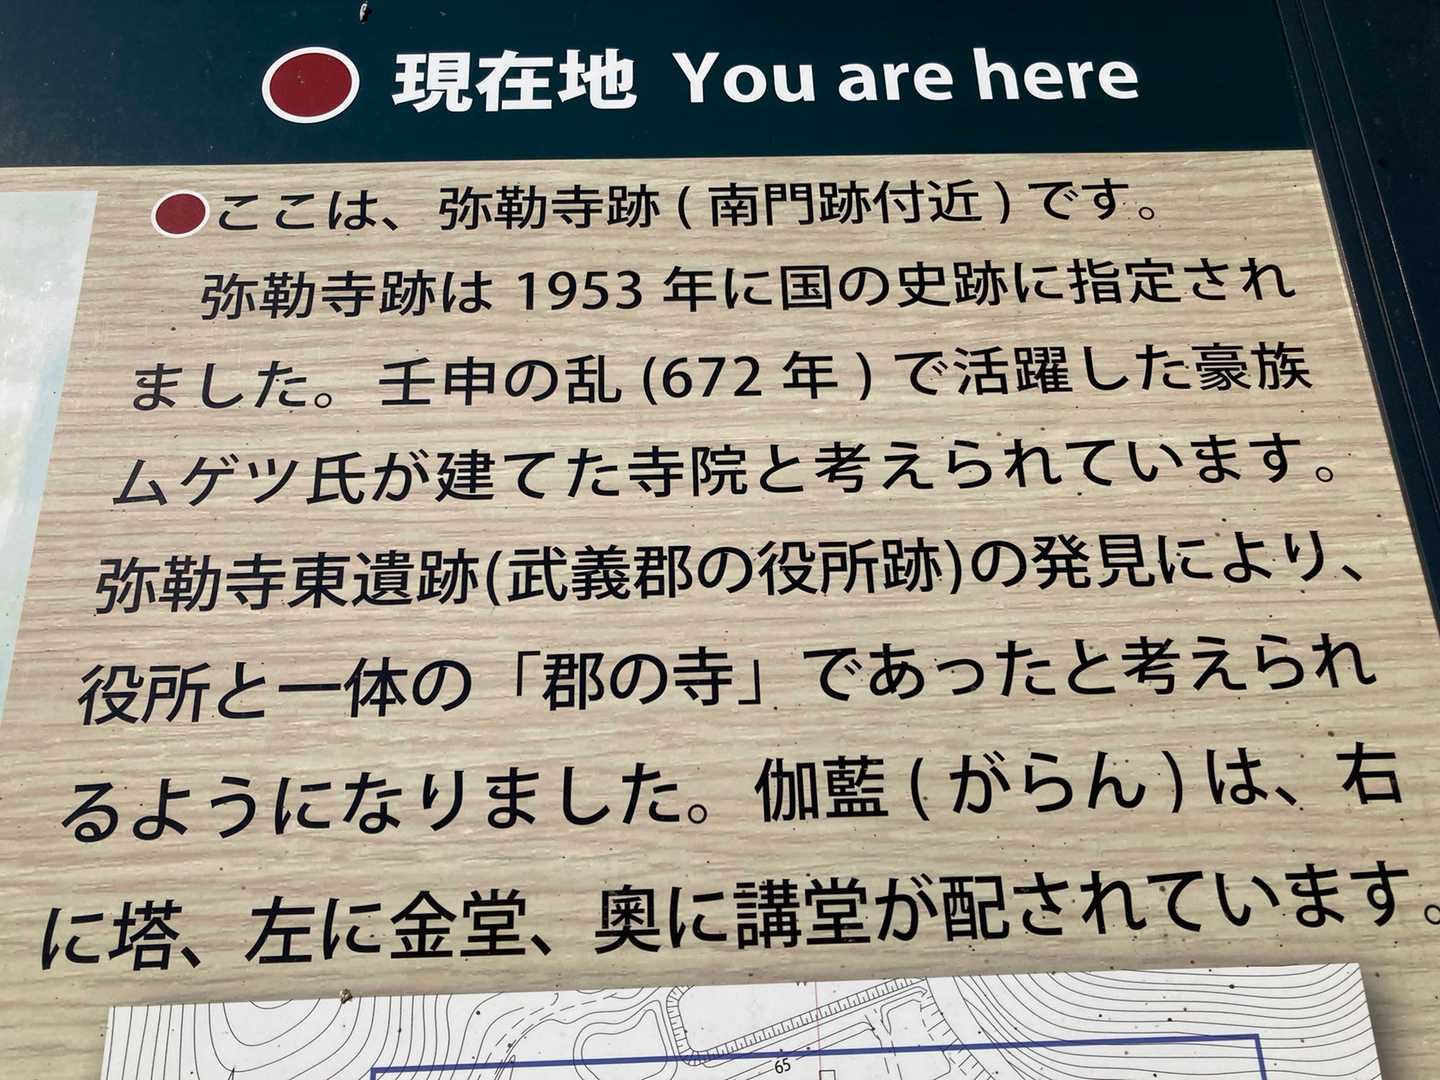 現在地 You are here
ここは、弥勒寺跡(南門跡付近)です。
弥勒寺跡は1953年に国の史跡に指定され
ました。壬申の乱(672年)で活躍した豪族
ムゲツ氏が建てた寺院と考えられています。
弥勒寺東遺跡(武義郡の役所跡)の発見により、
役所と一体の「郡の寺」であったと考えられ
るようになりました。伽藍(がらん)は、右
に塔、左に金堂、奥に講堂が配されています。
65